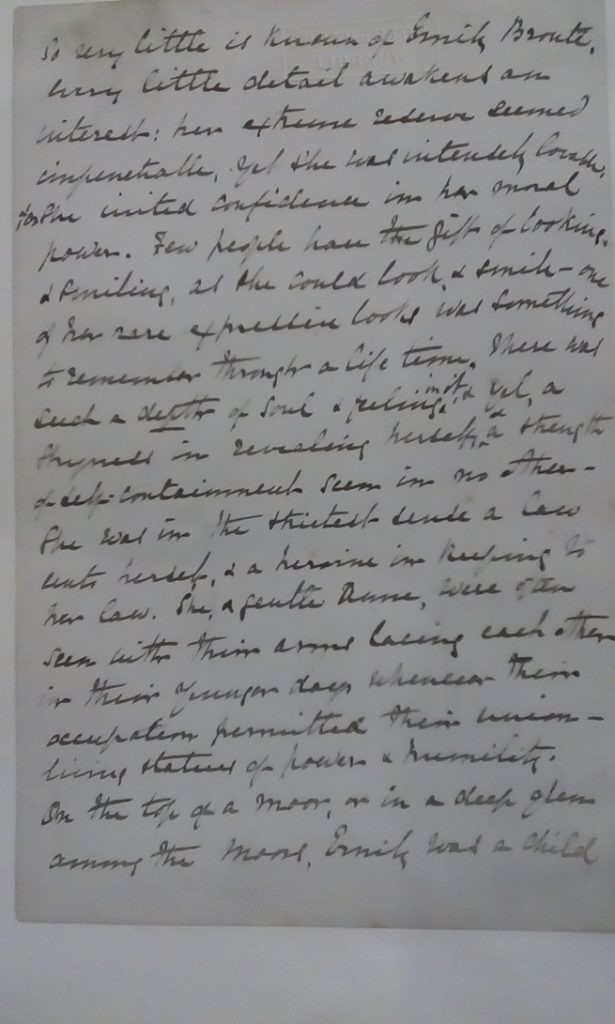 So very little is known of Emily Brontë,
every little detail awakens an
interest: her extreme reserve seemed
impenetrable, yet she was intensely lovable,
for she invited confidence in her moral
power. Few people have the gift of looking,
& smiling, as she could look, & smile – one
of her rare expressive looks was something
to remember through a life time. There was
such a depth of soul & feeling, & yet, a
shyness in revealing herself, a strength
of self-containment seen in no other –
She was in the strictest sense a law
unto herself, & a heroine in keeping to
her law. She, & gentle Anne, were often
seen with their arms lacing each other
in their younger days whenever their
occupation permitted their union –
living statues of power & humility.
On the top of a moor, or in a deep glen
among the moors, Emily was a child